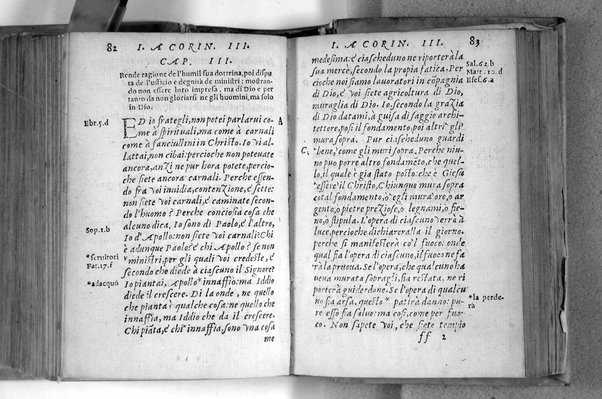 82 I. A CORIN. III.
CAP. III.
Rende ragione de l'humil sua dottrina, poi disputa
de l'ufficio e degnità de ministri: mostrando
non essere loro impresa, ma di Dio e per
tanto da non gloriarsi ne gli huomini, ma solo
in Dio.
Ebr. 5. d
ED io frategli, non potei parlarui co- A
me à spirituali, ma come à carnali
come à fanciullini in Christo. Io vi al-
lattai, non cibai: percioche non poteuate
ancora, anzi ne pur hora potete, percio-
che siete ancora carnali. Perche essen-
do fra voi inuidia, contenzione, e sette:
non siete voi carnali, e caminate secon-
do l'huomo? Perche conciosia cosa che
alcuno dica, Io sono di Paolo, e l'altro,
Sop. 1. b
Io d'Apollo: non siete voi carnali? Chi
è adunque Paolo? e chi Apollo? se non
*seruitori
*ministri, per gli quali voi credeste, e
Fat. 17. f
secondo che diede à ciascuno il Signore?
*adacquò
Io piantai, Apollo *innaffio: ma Iddio
diede il crescere. Di la onde, ne quello
che pianta è qualche cosa: ne quello che
innaffia, ma Iddio che da il crescere.
Chi piāta, e chi innaffia, sono vna cosa
me
I. A CORIN. III. 83
medesima. e ciascheduno ne riporterà la
Sal. 62. b
sua mercè, secondo la propia fatica. Per
Mat. 10. d
cioche noi siamo lauoratori in cōpagnia
Esef. 6. a
di Dio, e voi siete agricoltura di Dio,
muraglia di Dio. Io, secondo la grazia
di Dio datami, à guisa di saggio archi-
tettore, posi il fondamento. poi altri gli
mura sopra. Pur ciascheduno guardi
C
bene, come gli muri sopra. Perche niu-
no puo porre altro fondamēto, che quel-
lo, il quale è gia stato posto: che è Giesu
essere il Christo. Chiunque mura sopra
cotal fondamento, ò egli mura oro, ò ar-
gento, ò pietre preziose, ò legnami, ò fie-
no, ò stipula. l'opera di ciascuno verrà à
luce, percioche dichiareralla il giorno.
perche si manifesterà col fuoco: onde
qual sia l'opera di ciascuno, il fuoco ne fa
rà la pruoua. Se l'opera, che qual'euno ha
ueua murata sopragli, sia restata, ne ri
porterà guiderdone. Se l'opera di qualcu-
no sia arsa, questo *patirà danno: pu-
*la perde-
rà
re esso fia saluo: ma cosi, come per fuo-
co. Non sapete voi, che siete tempio
ff 2